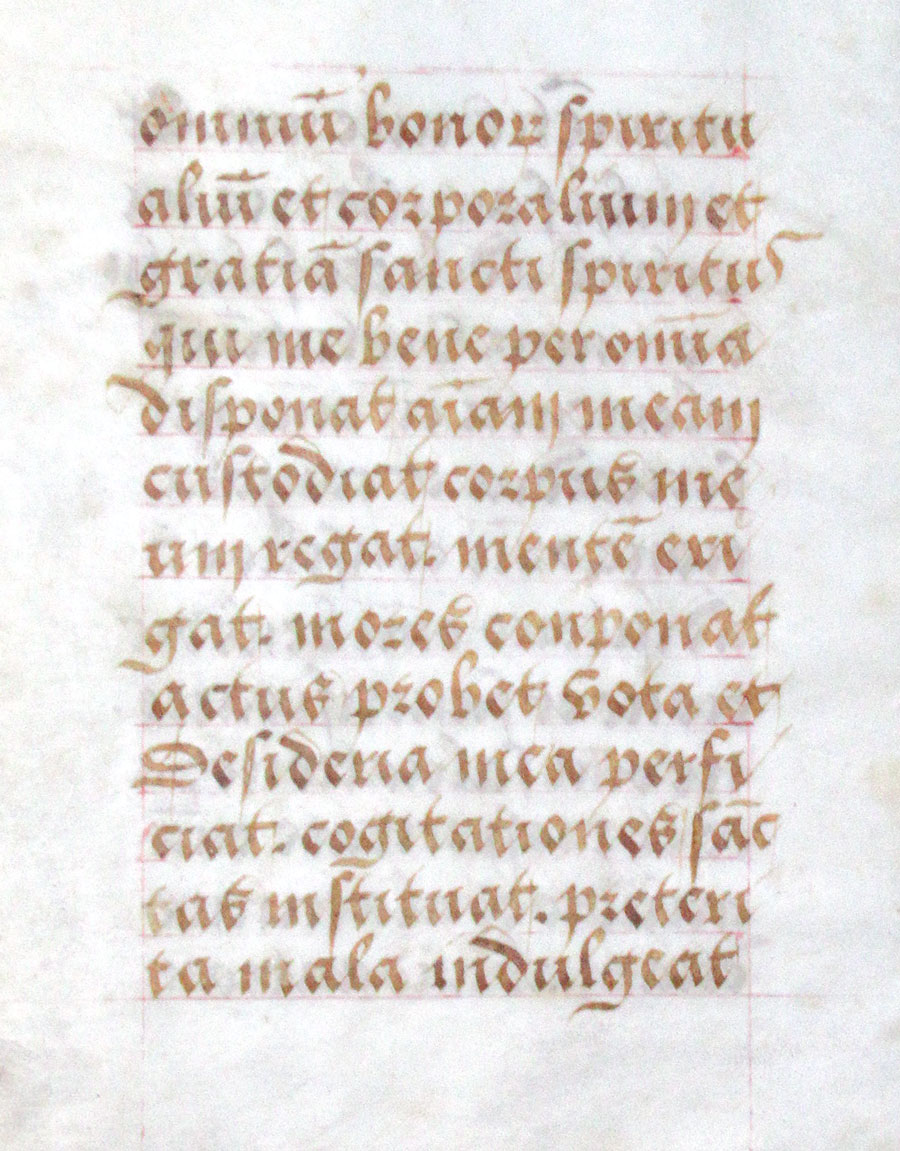 omniū bonoꝝ spiritu
aliū et corporalium et
gratiā sancti spiritus
qui me bene per om̄ia
disponat aīam meam
custodiat corpus me
um regat. mentē eri
gat. mores conponat
actus probet vota et
Desideria mea perfi
ciat. cogitationes sāc
tas instituat. preteri
ta mala indulgeat